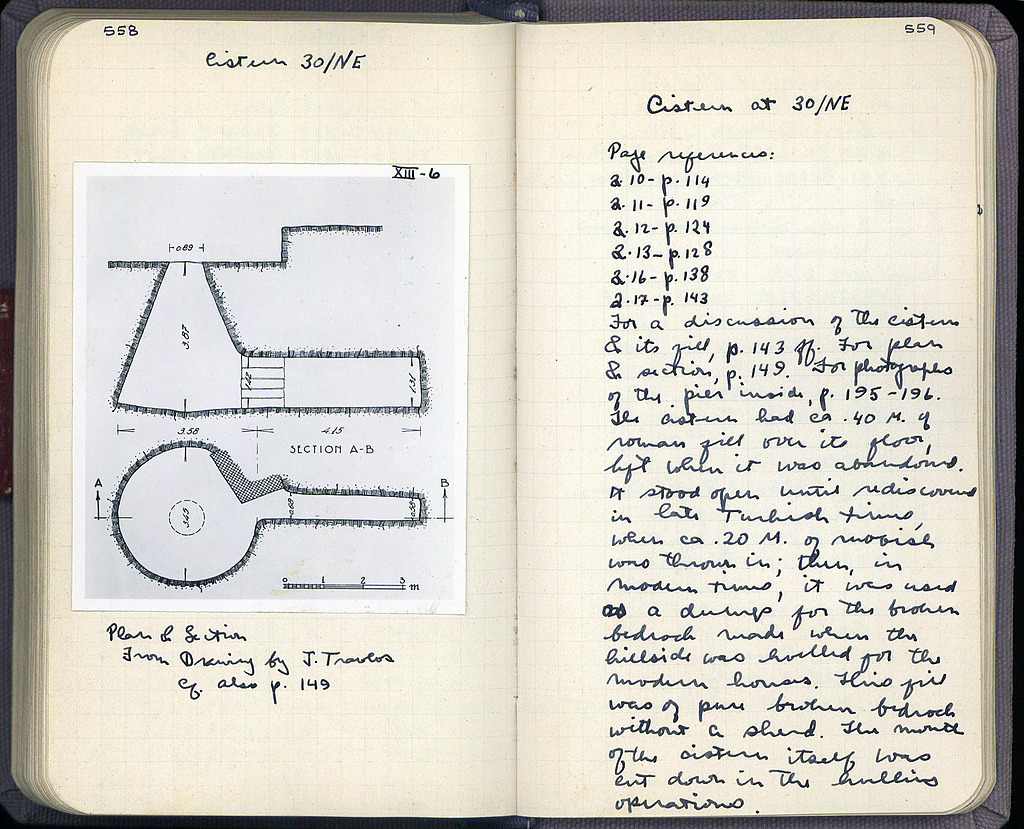 558
Cistern 30/NE
XIII-6
0.89
3.87
1.31
3.58
4.15
SECTION A-B
A
B
3.45
0 1 2 3 m
Plan & Section
From Drawing by J. Travlos
Cf. also p. 149
559
Cistern at 30/NE
Page references:
2.10- p. 114
2.11- p. 119
2.12- p. 124
2.13- p. 128
2.16- p. 138
2.17- p. 143
For a discussion of the cistern
& its fill, p. 143 ff. For plan
& section, p. 149. For photographs
of the pier inside, p. 195-196.
The cistern had ca .40 M. of
roman fill over its floor,
left when it was abandoned.
It stood open until rediscovered
in late Turkish times,
when ca .20 M. of rubbish
was thrown in; then, in
modern times, it was used
as a dump for the broken
bedrock made when the
hillside was levelled for the
modern houses. This fill
was of pure broken bedrock
without a sherd. The mouth
of the cistern itself was
cut down in the levelling
operations.